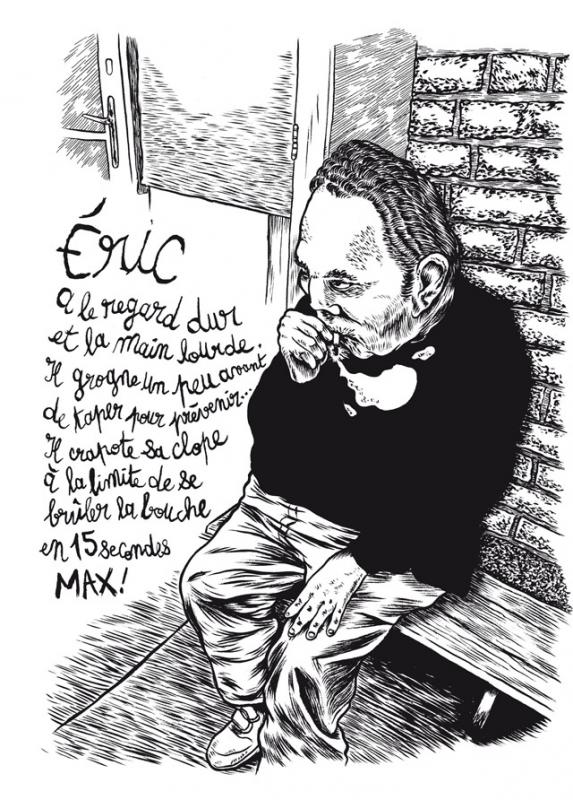 Éric
a le regard dur
et la main lourde.
Il grogne un peu avant
de taper pour prévenir...
Il crapote sa clope
à la limite de se
brûler la bouche
en 15 secondes
MAX!